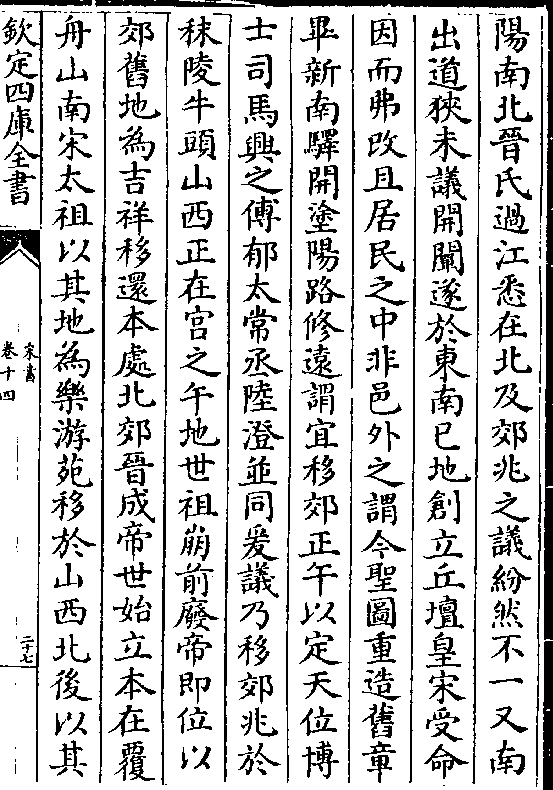 陽南北晉氏過江悉在北及郊兆之議紛然不一又南
出道狹未議開闡遂於東南巳地創立丘壇皇宋受命
因而弗改且居民之中非邑外之謂今聖圖重造舊章
畢新南驛開塗陽路修遠謂宜移郊正午以定天位博
士司馬興之傅郁太常丞陸澄並同爰議乃移郊兆於
秣陵牛頭山西正在宫之午地世祖崩前廢帝即位以
郊舊地為吉祥移還本處北郊晉成帝世始立本在覆
舟山南宋太祖以其地為樂游苑移於山西北後以其
欽定四庫全書
宋書
卷十四
二十七